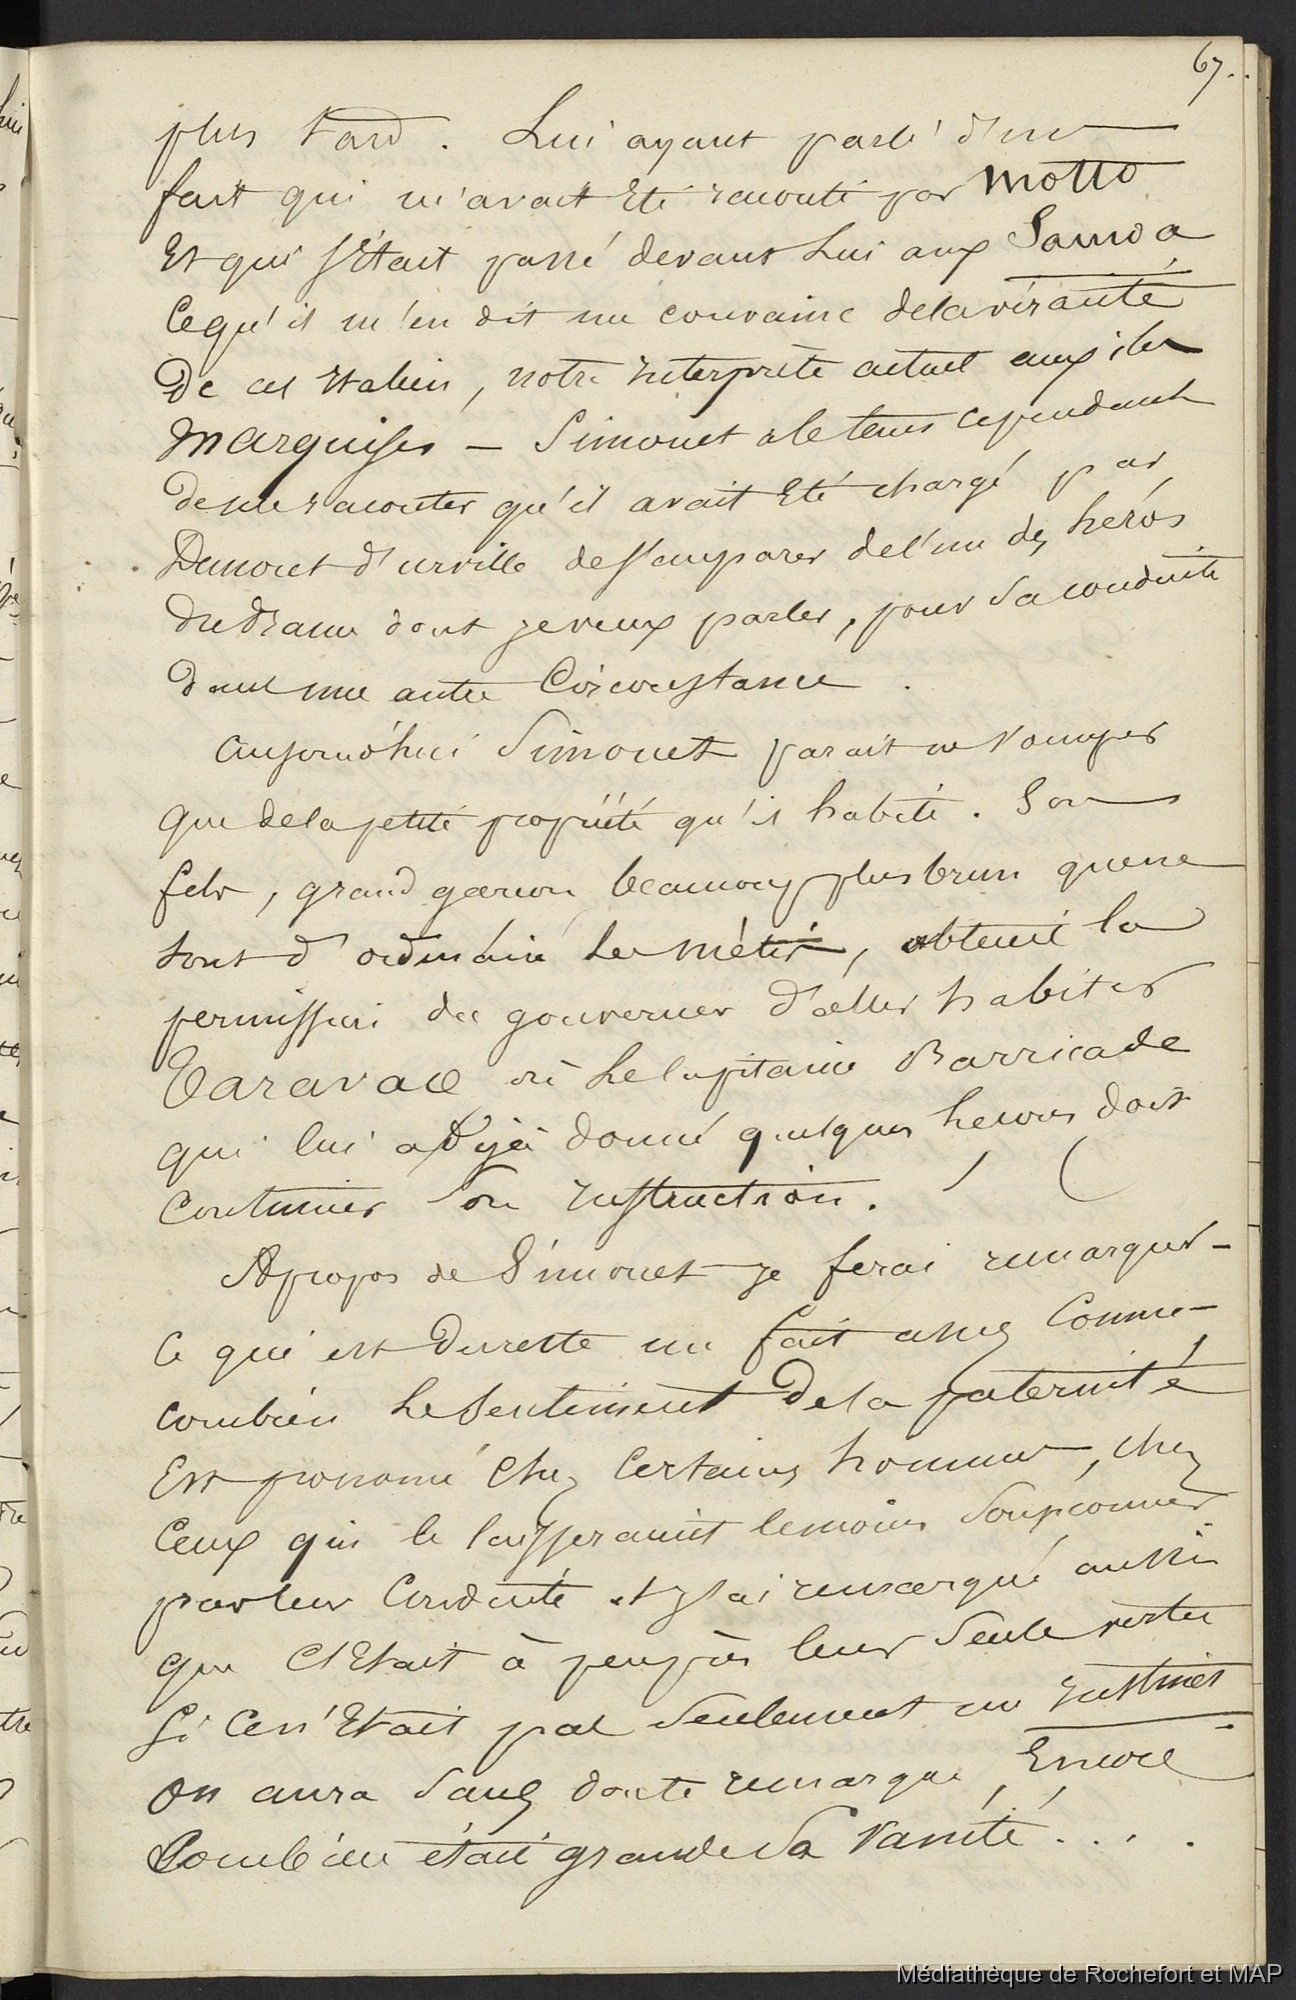 67.
plus tard. Lui ayant parlé d'un
fait qui m'avait été raconté par Motto
et qui s'était passé devant lui aux Samoa
ce qu'il m'en dit me convainc de la véracité
de cet italien, notre interprète actuel aux iles
Marquises — Simonet a le tems cependant
de me raconter qu'il avait été chargé par
Dumont d'urville de s'emparer de l'un des héros
du drame dont je veux parler, pour sa conduite
dans une autre circonstance.
Aujourd'hui Simonet parait ne s'occuper
que de la petite propriété qu'il habite. Son
fils, grand garçon beaucoup plus brun que ne
sont d'ordinaire les métis, obtient la
permission du gouverneur d'aller habiter
Taravao où le capitaine Barricade
qui lui a déjà donné quelques heures doit
continuer son instruction.
Apropos de Simonet je ferai remarquer -
ce qui est dureste un fait assez connu -
combien le sentiment de la paternité
est prononcé chez certains hommes, chez
ceux qui le laisseraient le moins soupçonner
par leur conduite et j'ai remarqué aussi
que c'était à peu près leur seule vertu
si ce n'était pas seulement un instinct
on aura sans doute remarqué, encore
combien était grande sa vanité . . . .
Médiathèque de Rochefort et MAP